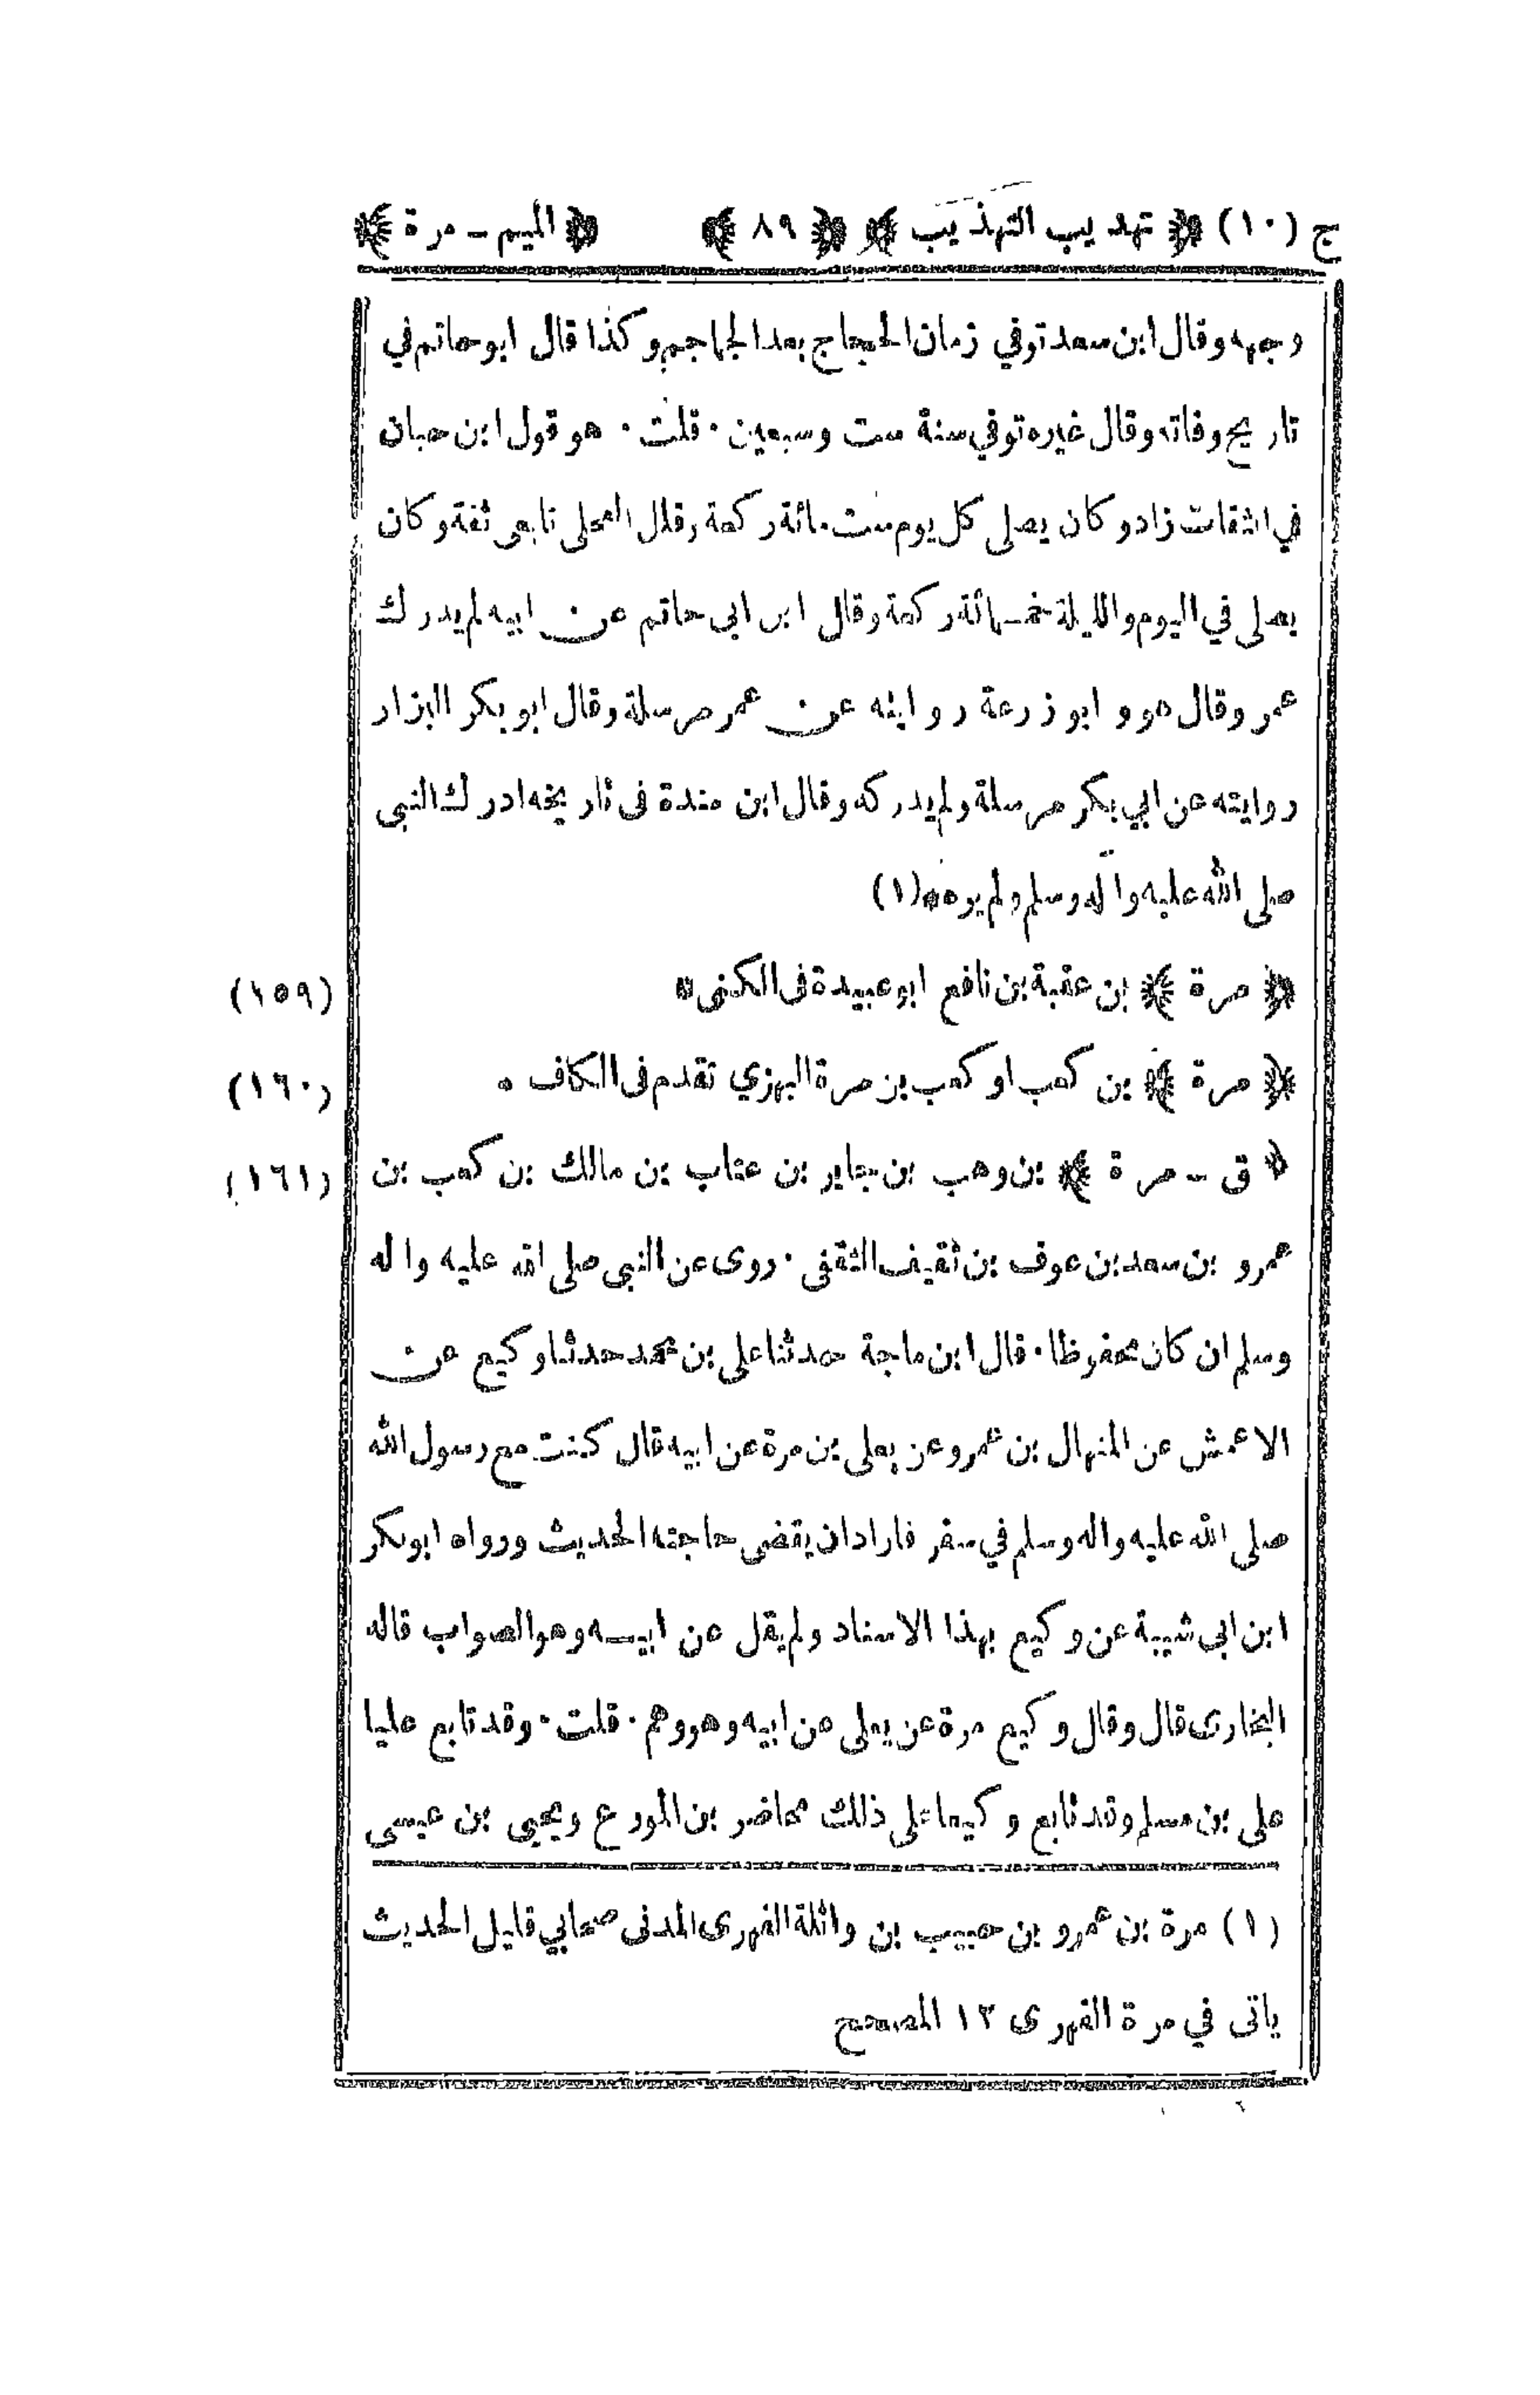 ج (١٠) ﴿ تهذيب التهذيب ﴾ ﴿ ٨٩ ﴾ ﴿ الميم - مرة ﴾
وجهه وقال ابن سعد توفي زمان الحجاج بعد الجماجم وكذا قال ابو حاتم في
تاريخ وفاته وقال غيره توفي سنة ست وسبعين · قلت · هو قول ابن حبان
في الثقات زاد وكان يصلى كل يوم ست مائة ركعة وقال العجلى تابعى ثقة وكان
يصلى في اليوم والليلة خمسمائة ركعة وقال ابن ابى حاتم عن ابيه لم يدرك
عمر وقال هو و ابو زرعة روايته عن عمر مرسلة وقال ابو بكر البزار
روايته عن ابي بكر مرسلة ولم يدركه وقال ابن مندة فى تاريخه ادرك النبي
صلى الله عليه وآله وسلم ولم يره * (١)
﴿ مرة ﴾ بن عقبة بن نافع ابو عبيدة فى الكنى * (١٥٩)
﴿ مرة ﴾ بن كعب او كعب بن مرة البهزي تقدم فى الكاف * (١٦٠)
﴿ ق - مرة ﴾ بن وهب بن جابر بن عتاب بن مالك بن كعب بن (١٦١)
عمرو بن سعد بن عوف بن ثقيف الثقفى · روى عن النبي صلى الله عليه واله
وسلم ان كان محفوظا · قال ابن ماجة حدثنا على بن محمد حدثنا وكيع عن
الاعمش عن المنهال بن عمرو عن يعلى بن مرة عن ابيه قال كنت مع رسول الله
صلى الله عليه واله وسلم في سفر فاراد ان يقضى حاجته الحديث ورواه ابو بكر
ابن ابى شيبة عن وكيع بهذا الاسناد ولم يقل عن ابيه وهو الصواب قاله
البخارى قال وقال وكيع مرة عن يعلى عن ابيه وهو وهم · قلت · وقد تابع عليا
على بن مسلم وقد تابع وكيعا على ذلك محاضر بن المورع ويحيى بن عيسى
(١) مرة بن عمرو بن حبيب بن واثلة الفهرى المدنى صحابي قليل الحديث
ياتى في مرة الفهرى ١٢ المصحح